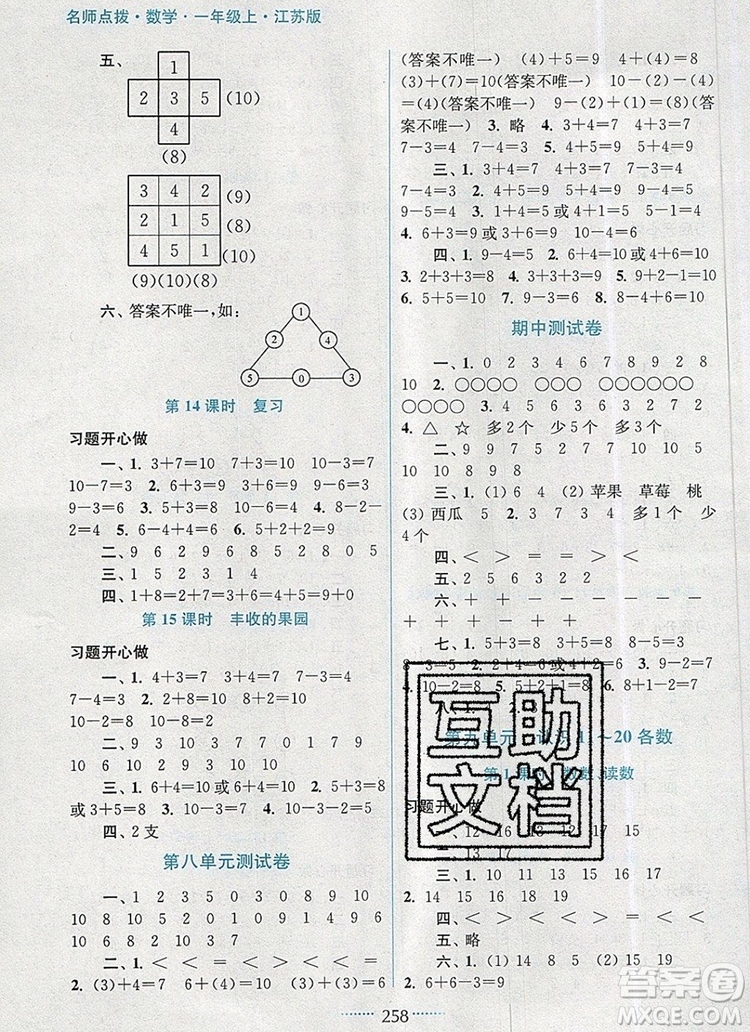 名师点拨·数学·一年级上·江苏版
五、
1
2 3 5 (10)
4
(8)
3 4 2 (9)
2 1 5 (8)
4 5 1 (10)
(9)(10)(8)
六、答案不唯一,如:
1
2 4
5 0 3
第 14 课时 复习
习题开心做
一、1. 3+7=10 7+3=10 10-3=7
10-7=3 2. 6+3=9 3+6=9 9-6=3
9-3=6 3. 5+3+2=10 4. 8-2-
2=4 5. 6-4+4=6 6. 5+2+2=9
二、9 2 9 6 2 9 5 2 8 0 5
三、1 5 2 3 4
四、1+8=2+7=3+6=4+5=9+0
第 15 课时 丰收的果园
习题开心做
一、1. 4+3=7 3+4=7 7-3=4
7-4=3 2. 2+8=10 8+2=10
10-2=8 10-8=2
二、9 3 9 3 10 3 7 10 10
9 10 2 9 10 10 5
三、1. 6+4=10 或 4+6=10 2. 6+
2=8 3. 10-3=7 4. 5+3=8
或 3+5=8 5. 9-7=2
四、2 支
第八单元测试卷
一、1 5 10 10 3 8 10 9 9
10 8 10 2 0 10 10 3 4 9 6
10 10 5 4 6
二、1. < > < = = > < = <
2. (3)+(4)=7 (4)+(4)=8 (2)+(4)=6
(答案不唯一) (4)+5=9 4+(4)=8
(3)+(7)=10(答案不唯一) 10-(2)-(4)
=(4)(答案不唯一) 9-(2)+(1)=(8)(答
案不唯一) 3. 略 4. 3+4=7 4+3=7
7-3=4 7-4=3 5. 3+3=6
三、1. 3+4=7 4+3=7 7-3=4
7-4=3 2. 4+5=9 5+4=9 9-4=5
9-5=4 3. 4+1=5 或 1+4=5 5-1=4
4. 6+3=9 或 3+6=9 10-4=6
四、1. 9-4=5 2. 6+4=10 或 4+6=
10 3. 2+3+3=8 4. 6-3+2=5 5. 9-
6=3 6. 5+5=10 7. 2+2+6=10
期中测试卷
一、1. 1 0 2 3 4 6 7 8 9 2 9 8
10 2. ○○○○ ○○○ ○○ ○○○○○○
○○○○○ 3. 4 5 7 8 9 7 5 4 2 1
4. △ ☆ 多 2 个 少 5 个 多 2 个
二、9 9 9 0 2 0 10 6 3 6 10
10 10 8 9 8
三、1. (1) 6 4 (2) 苹果 草莓 桃
(3) 西瓜 5 2. 7 3 3. 多 1 个 少
4 个
四、< < > = = = > > <
五、2 5 6 3 2 2
六、+ - - + - - + +
+ + + + + - + +
七、1. 5+3=8 3+5=8 8-5=3
8-3=5 2. 2+4=6 或 4+2=6 3. 4+4=8
4. 10-2=8 6=2 6. 8+1-2=7
~20 各数
读数
习题开心做
三、1. 8 9 10 13 15 16 17 19
2. 14 15 16 17 18 19 20
四、< < > < > = > < <
五、略
六、1. (1) 14 (2) 15 19 (3) 15 20
2. 6+6-3=9
258
互助文档
答案圈
MXQE.COM